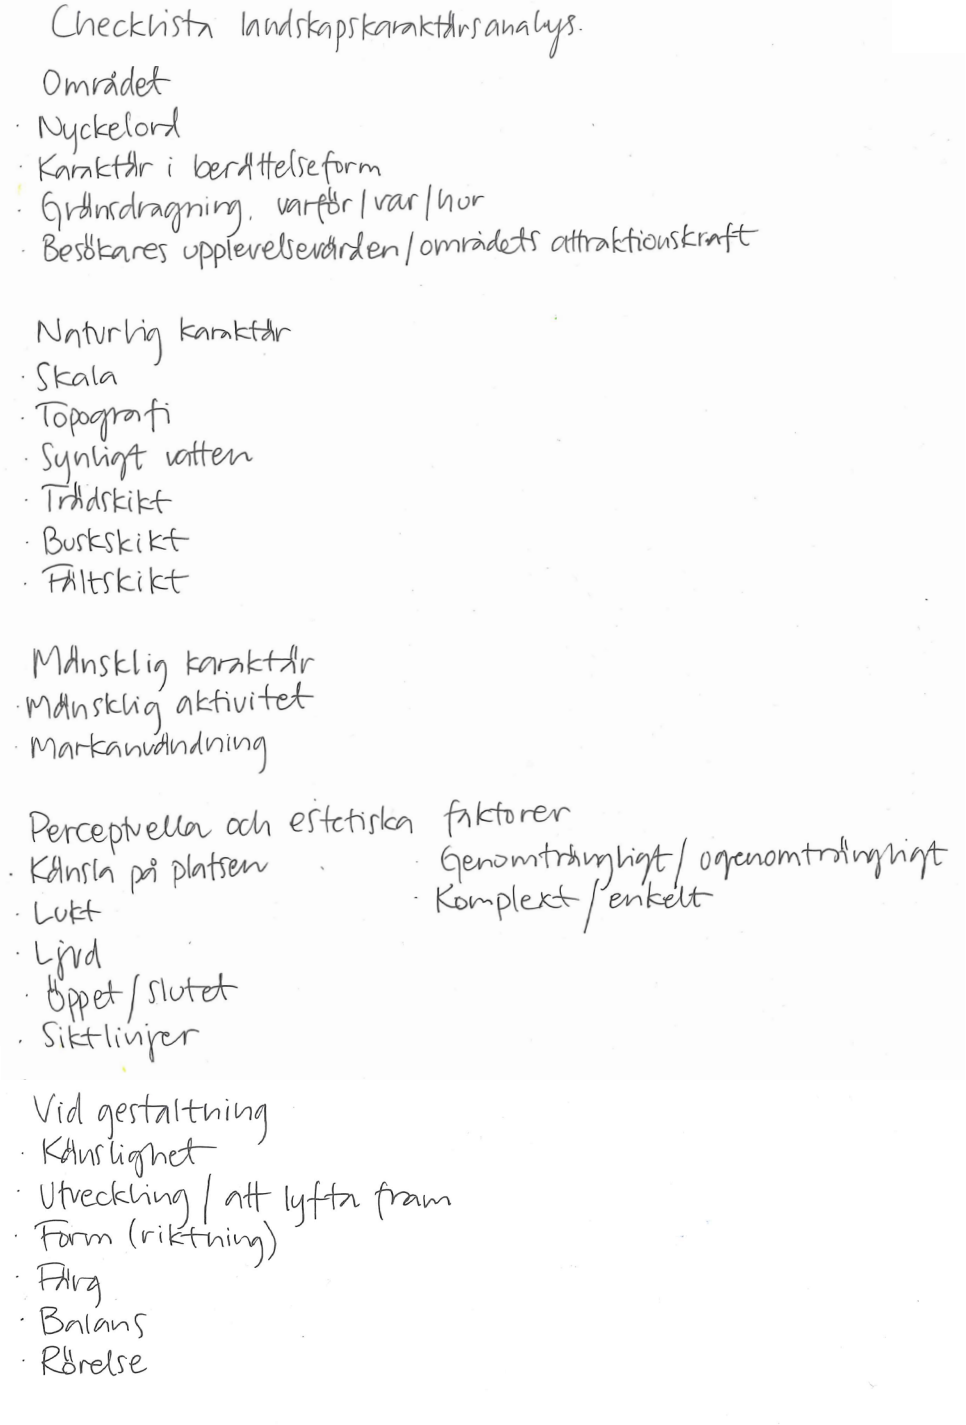 Checklista landskapskaraktärsanalys.
Området
· Nyckelord
· Karaktär i berättelseform
· Gränsdragning, varför/var/hur
· Besökares upplevelsevärden/områdets attraktionskraft
Naturlig karaktär
· Skala
· Topografi
· Synligt vatten
· Trädskikt
· Buskskikt
· Fältskikt
Mänsklig karaktär
· Mänsklig aktivitet
· Markanvändning
Perceptuella och estetiska faktorer
· Känsla på platsen
· Lukt
· Ljud
· Öppet/slutet
· Siktlinjer
· Genomträngligt/ogenomträngligt
· Komplext/enkelt
Vid gestaltning
· Känslighet
· Utveckling/att lyfta fram
· Form (riktning)
· Färg
· Balans
· Rörelse